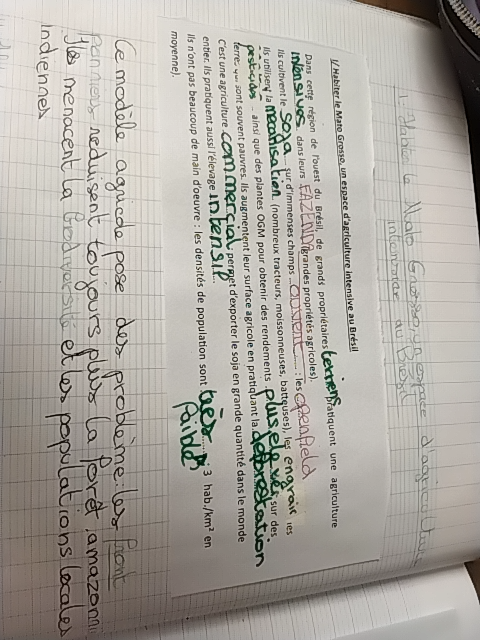 1. Habiter le Mato Grosso, un espace d'agriculture
au Brésil
I/ Habiter le Mato Grosso, un espace d'agriculture intensive au Brésil
Dans cette région de l'ouest du Brésil, de grands propriétaires terriens pratiquent une agriculture
intensives dans leurs FAZENDA (grandes propriétés agricoles).
Ils cultivent le soja sur d'immenses champs ouvent : les openfield
Ils utilisent la mecanisation (nombreux tracteurs, moissonneuses, batteuses), les engrais les
pesticides ainsi que des plantes OGM pour obtenir des rendements plus elevés sur des
terres qui sont souvent pauvres. Ils augmentent leur surface agricole en pratiquant la deforestation
C'est une agriculture commercial permet d'exporter le soja en grande quantité dans le monde
entier. Ils pratiquent aussi l'élevage intensif
Ils n'ont pas beaucoup de main d'oeuvre : les densités de population sont très faibles : 3 hab./km² en
moyenne).
Ce modèle agricole pose des problème : les front
pionniers reduisent toujours plus la forêt amazoni
Ils menacent la biodiversité et les populations locales
indiennes